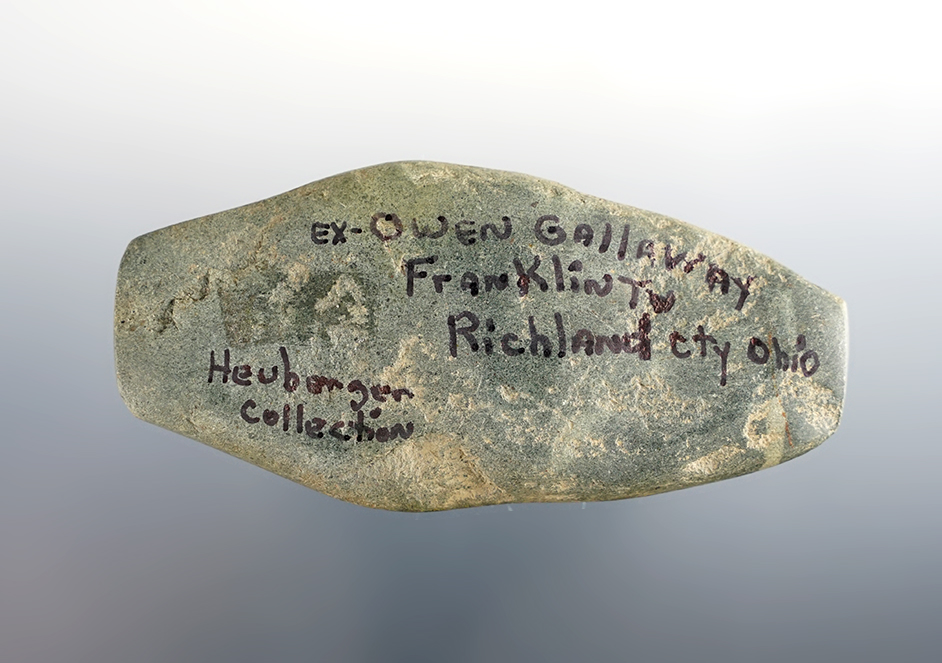 EX-OWEN GAllAWAY
FrANKliNTW
RichlANd cty Ohio
Heubergen
Collection